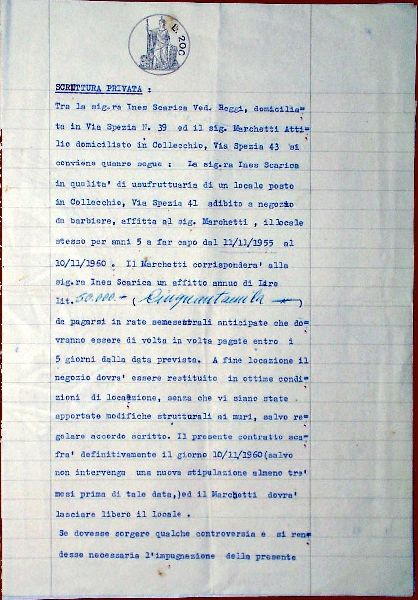 L. 200
SCRITTURA PRIVATA :
Tra la sig.ra Ines Scarica Ved. Reggi, domicilia=
ta in Via Spezia N. 39 ed il sig. Marchetti Atti=
lio domiciliato in Collecchio, Via Spezia 43 si
conviene quanro segue : La sig.ra Ines Scarica
in qualita' di usufruttuaria di un locale posto
in Collecchio, Via Spezia 41 adibito a negozio
da barbiere, affitta al sig. Marchetti , illocale
stesso per anni 5 a far capo dal 11/11/1955 al
10/11/1960 . Il Marchetti corrispondera' alla
sig.ra Ines Scarica un affitto annuo di Lire
lit. 50.000.- ( Cinquantamila - )
da pagarsi in rate semesetrali anticipate che do=
vranno essere di volta in volta pagate entro i
5 giorni dalla data prevista. A fine locazione il
negozio dovra' essere restituito in ottime condi=
zioni di locazione, senza che vi siano state
apportate modifiche strutturali ai muri, salvo re=
golare accordo scritto. Il presente contratto sca=
fra' definitivamente il giorno 10/11/1960(salvo
non intervenga una nuova stipulazione almeno tre'
mesi prima di tale data,)ed il Marchetti dovra'
lasciare libero il locale .
Se dovesse sorgere qualche controversia e si ren=
desse necessaria l'impugnazione della presente